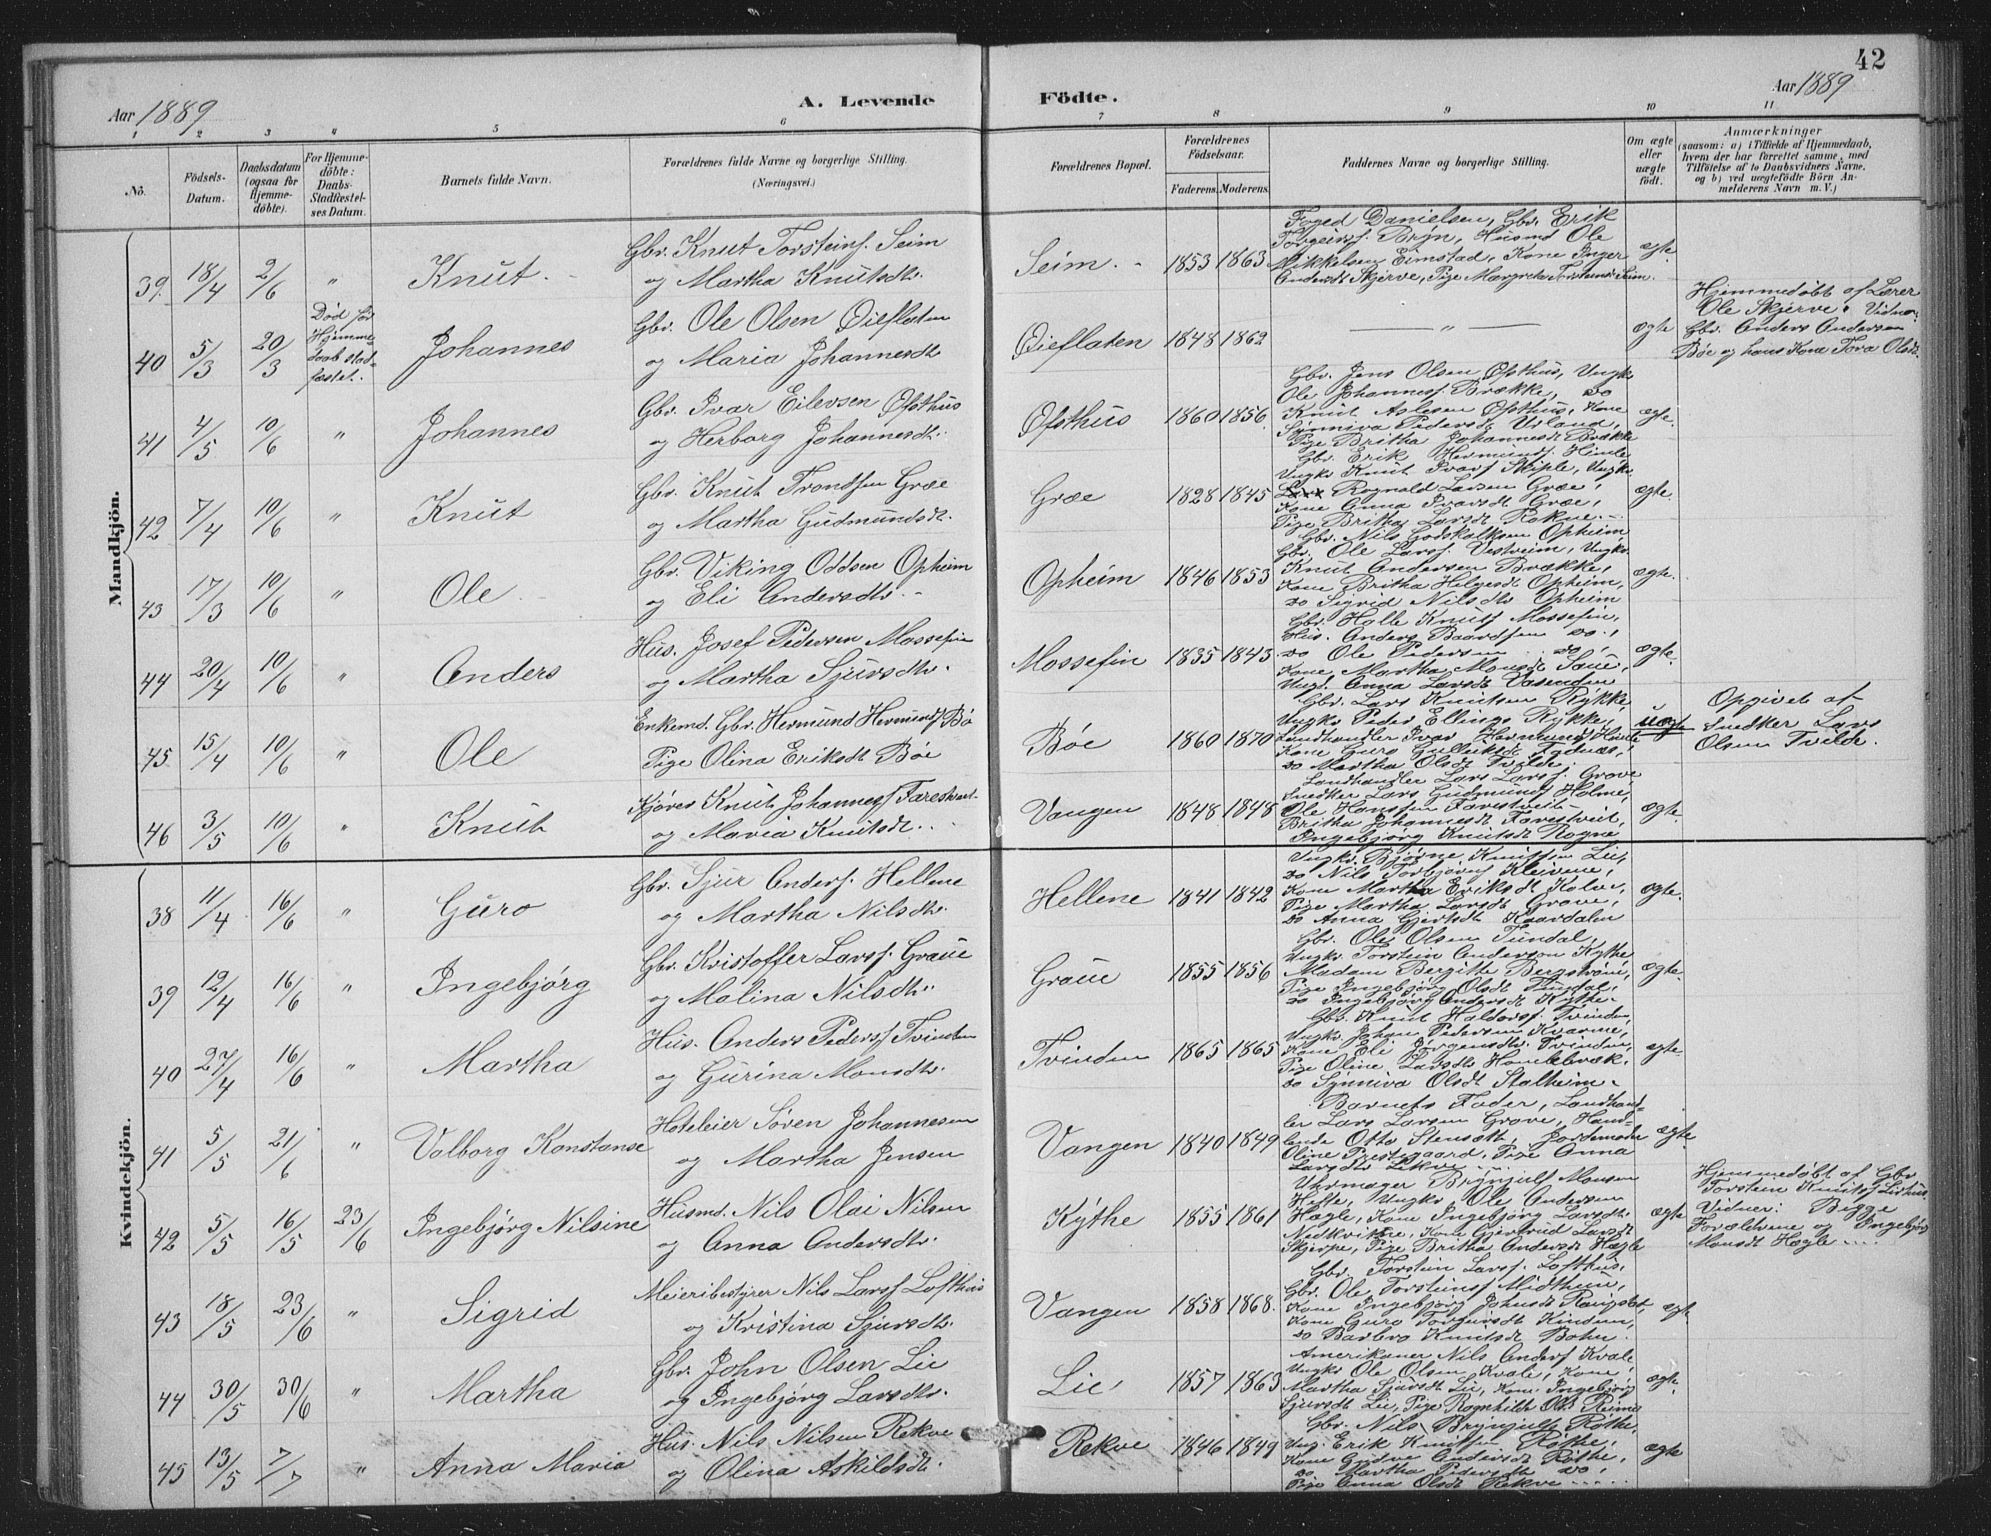 42
Aar 1889
A. Levende Födte.
Aar 1889
1 2 3 " 5 6 7 8 9 10 11
No.
Födsels-Datum.
Daabsdatum (ogsaa for Hjemme-döbte).
For Hjemme-döbte: Daabs-Stadfæstel-ses Datum.
Barnets fulde Navn.
Forældrenes fulde Navne og borgerlige Stilling.
(Næringsvei.)
Forældrenes Bopæl.
Forældrenes Födselsaar.
Faderens. Moderens.
Faddernes Navne og borgerlige Stilling.
Om ægte eller uægte födt.
Anmærkninger
(saasom: a) i Tilfælde af Hjemmedaab,
hvem der har forrettet samme, med
Tilföielse af to Daabsvidners Navne.
og b) ved uægtefödte Börn An-
melderens Navn m. V.)
Mandkjön.
39. 18/4 2/6 " Knut.
Gbr. Knut Torsteins. Seim
og Martha Knutsdt.
Seim. 1853 1863
Foged Danielsen, Gbr. Erik
Torgeirss. Bryn, Husmd Ole
Mikkelsen Eimstad, Kone Inger
Andersdt Skjerve, Pige Margretha Torsteinsdt Seim.
ægte.
40 5/3 20/3
Død før
Hjemme-
daab stad-
fæstet.
Johannes
Gbr. Ole Olsen Øieflaten
og Maria Johannesdt.
Øieflaten 1848 1862
— " —
ægte
Hjemmedøbt af Lærer
Ole Skjerve. Vidner:
Gbr. Anders Andersen
Bøe og hans Kone Tora Olsdt.
41 4/5 10/6 " Johannes
Gbr. Ivar Eilevsen Øfsthus
og Herborg Johannesdt.
Øfsthus 1860 1856.
Gbr. Jens Olsen Øfsthus, Ungk.
Ole Johanness. Brække, do
Knut Aslesen Øfsthus, Kone
Synniva Pedersdt Urland,
Pige Britha Johannesdt Brække
ægte.
42 7/4 10/6 " Knut
Gbr. Knut Trondsen Græe
og Martha Gudmundsdt.
Græe 1828 1845
Gbr. Erik Hermunds. Himle,
Ungk. Knut Ivars. Skiple, Ungk.
Rognald Larsen Græe,
Kone Anna Ivarsdt Græe,
Pige Britha Larsdt Rokne.
ægte.
43 17/3 10/6 " Ole
Gbr. Viking Oddsen Opheim
og Eli Andersdt.
Opheim 1846 1853
Gbr. Nils Godskalksen Opheim
Gbr. Ole Larss. Vestreim, Ungk.
Knut Andersen Brække,
Kone Britha Helgesdt Opheim,
do Sigrid Nilsdt. Opheim
ægte.
44 20/4 10/6 " Anders
Hus. Josef Pedersen Mossefin
og Martha Sjursdt.
Mossefin 1835 1843.
Gbr. Halle Knuts. Mossefin,
Hus. Anders Baardsen do.,
do Ole Pedersen do,
Kone Martha Monsdt Saue,
Ungd. Anna Larsdt Vasenden
ægte.
45 15/4 10/6 " Ole
Enkemd. Gbr. Hermund Hermunds. Bø
Pige Olina Eriksdt Bøe
Bøe 1860 1870
Gbr. Lars Knutsen Rykke,
Ungk. Peder Ellings. Rykke,
Landhandler Ivar Hermunds. Himle
Kone Guro Gulleiksdt Tydnæs,
do Martha Olsdt Tvilde.
uægte
Opgivet af
Snedker Lars
Olsen Tvilde.
46 3/5 10/6 " Knut
Kjøres Knut Johanness. Farestveit
og Maria Knutsdt.
Vangen 1848 1848
Landhandler Lars Larss. Grove
Snedker Lars Gudmunds. Holme,
Ole Hanssen Farestveit
Britha Johannesdt Farestveit,
Ingebjørg Knutsdt Rogne
ægte.
Kvindekjön.
38 11/4 16/6 " Guro
Gbr. Sjur Anders. Hellene
og Martha Nilsdt.
Hellene 1841 1842
Ungk. Bjørne Knutsen Lie,
do Nils Torbjørns. Kleivene,
Kone Martha Eriksdt Kolve,
Pige Martha Larsdt Grove,
do Anna Gjertsdt Kaardalen
ægte.
39 12/4 16/6 " Ingebjørg
Gbr. Kristoffer Larss. Graue
og Malina Nilsdt.
Graue 1855 1856
Gbr. Ole Olsen Tundal,
Ungk. Torstein Andersen Kythe
Madam Bergitte Bergstrøm,
Pige Ingebjørg Olsdt Tundal,
do Ingebjørg Andersdt Kythe.
ægte
40 27/4 16/6 " Martha
Hus. Anders Peders. Tvinden
og Gurina Monsdt.
Tvinden 1865 1865
Gbr. Knut Haldors. Tvinden,
Ungk. Johan Pedersen Kvarme,
Kone Eli Jørgensdt. Tvinden,
Pige Oline Larsdt Homlebræk.
do Synniva Olsdt Stalheim.
ægte
41 5/5 21/6 " Valborg Konstanse
Hoteleier Søren Johannesen
og Martha Jensen
Vangen 1840 1849
Barnets Fader, Landhand-
ler Lars Larsen Grove, Hand-
lende Otto Stensæth, Jordemoder
Oline Prestegaard, Pige Anna
Larsdt. Lekve
ægte
42 5/5 16/5 23/6 Ingebjørg Nilsine
Husmd. Nils Olai Nilsen
og Anna Andersdt.
Kythe 1855 1861
Uhrmager Brynjulf Monsen
Hefte, Ungk. Ole Andersen
Hægle, Kone Ingebjørg Larsdt.
Nedkvitne, Kone Gjertrud Larsdt
Skjerpe, Pige Britha Andersdt Hægle
ægte
Hjemmedøbt af Gbr.
Torstein Knuts. Lirhus
Vidner: Begge
Forældrene og Ingebjør
Monsdt Hægle
43 18/5 23/6 " Sigrid
Meieribestyrer Nils Larss. Lofthus
og Kristina Sjursdt.
Vangen 1858 1868.
Gbr. Torstein Larss. Lofthus,
Gbr. Ole Torsteins. Midthun,
Kone Ingebjørg Johnsdt Ringstad,
Kone Guro Torgersdt Kinden,
do Barbro Knutsdt Bohn.
ægte
44 30/5 30/6 " Martha
Gbr. John Olsen Lie
og Ingebjørg Larsdt.
Lie 1857 1863
Amerikaner Nils Anders. Kvale
Ungk. Ole Olsen Kvale, Kone
Martha Sjursdt Lie, Kone Ingebjørg
Sjursdt Lie, Pige Ragnhilde Ols. Reime
ægte.
45 13/5 7/7 " Anna Maria
Hus. Nils Nilsen Rekve
og Olina Askildsdt.
Rekve 1846 1849
Gbr. Nils Brynjuls. Røthe,
Ung. Erik Knutsen Røthe,
Kone Gudve Andersdt Røthe,
do Martha Pedersdt do,
Pige Anna Olsdt Rekve
ægte